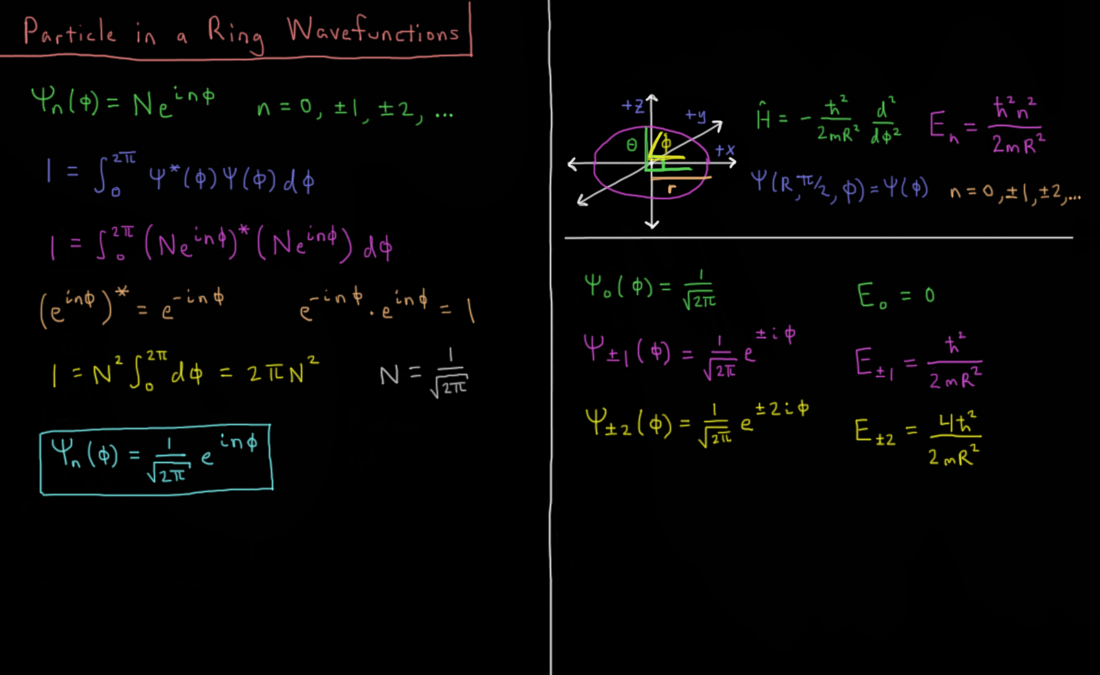 Particle in a Ring Wavefunctions
Ψₙ(ϕ) = Ne^{inϕ}   n = 0, ±1, ±2, ...
1 = ∫₀^{2π} Ψ*(ϕ)Ψ(ϕ)dϕ
1 = ∫₀^{2π} (Ne^{inϕ})*(Ne^{inϕ}) dϕ
(e^{inϕ})* = e^{-inϕ}   e^{-inϕ} · e^{inϕ} = 1
1 = N² ∫₀^{2π} dϕ = 2πN²   N = 1/√(2π)
Ψₙ(ϕ) = 1/√(2π) e^{inϕ}
+z
+y
θ
ϕ
+x
r
Ĥ = - ħ²/2mR² d²/dϕ²   Eₙ = ħ²n²/2mR²
Ψ(R, π/2, ϕ) = Ψ(ϕ)   n = 0, ±1, ±2, ...
Ψ₀(ϕ) = 1/√(2π)   E₀ = 0
Ψ_{±1}(ϕ) = 1/√(2π) e^{±iϕ}   E_{±1} = ħ²/2mR²
Ψ_{±2}(ϕ) = 1/√(2π) e^{±2iϕ}   E_{±2} = 4ħ²/2mR²